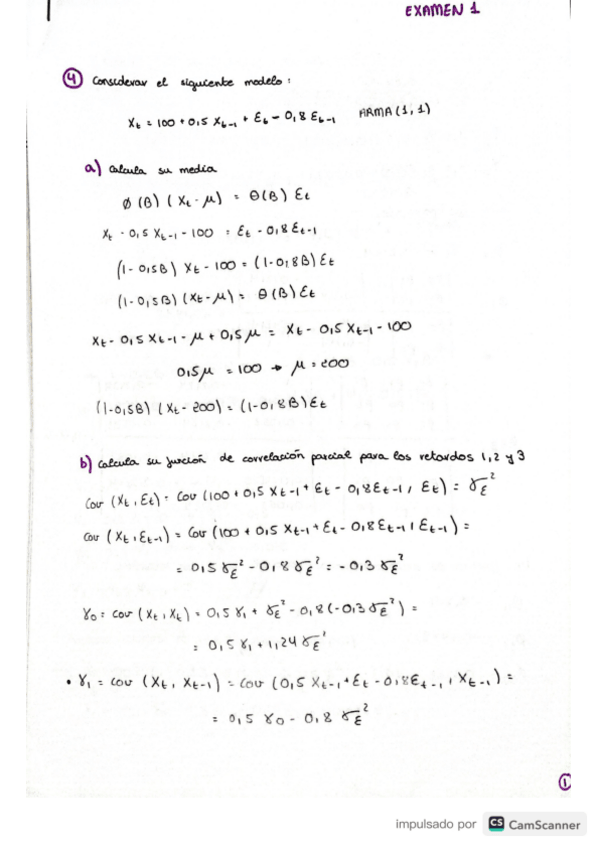 EXAMEN 1
4 Considerar el siguiente modelo:
Xt = 100 + 0,5 Xt-1 + Et - 0,8 Et-1 ARMA(1,1)
a) Calcula su media
Ø(B) (Xt - μ) = Θ(B) Et
Xt - 0,5 Xt-1 - 100 = Et - 0,8Et-1
(1 - 0,5B) Xt - 100 = (1-0,8B) Et
(1 - 0,5B) (Xt - μ) = Θ(B) Et
Xt - 0,5 Xt-1 - μ + 0,5 μ = Xt - 0,5 Xt-1 - 100
0,5μ = 100 → μ = 200
(1-0,5B) (Xt - 200) = (1-0,8B) Et
b) Calcula su función de correlación parcial para los retardos 1, 2 y 3
Cov (Xt, Et) = Cov (100 + 0,5 Xt-1 + Et - 0,8Et-1, Et) = σE²
Cov (Xt, Et-1) = Cov (100 + 0,5 Xt-1 + Et - 0,8Et-1, Et-1) =
= 0,5 σE² - 0,8 σE² = -0,3 σE²
γ0 = cov (Xt, Xt) = 0,5 γ1 + σE² - 0,8(-0,3 σE²) =
= 0,5 γ1 + 1,24 σE²
• γ1 = cov (Xt, Xt-1) = Cov (0,5 Xt-1 + Et - 0,8Et-1, Xt-1) =
= 0,5 γ0 - 0,8 σE²
1
impulsado por CS CamScanner